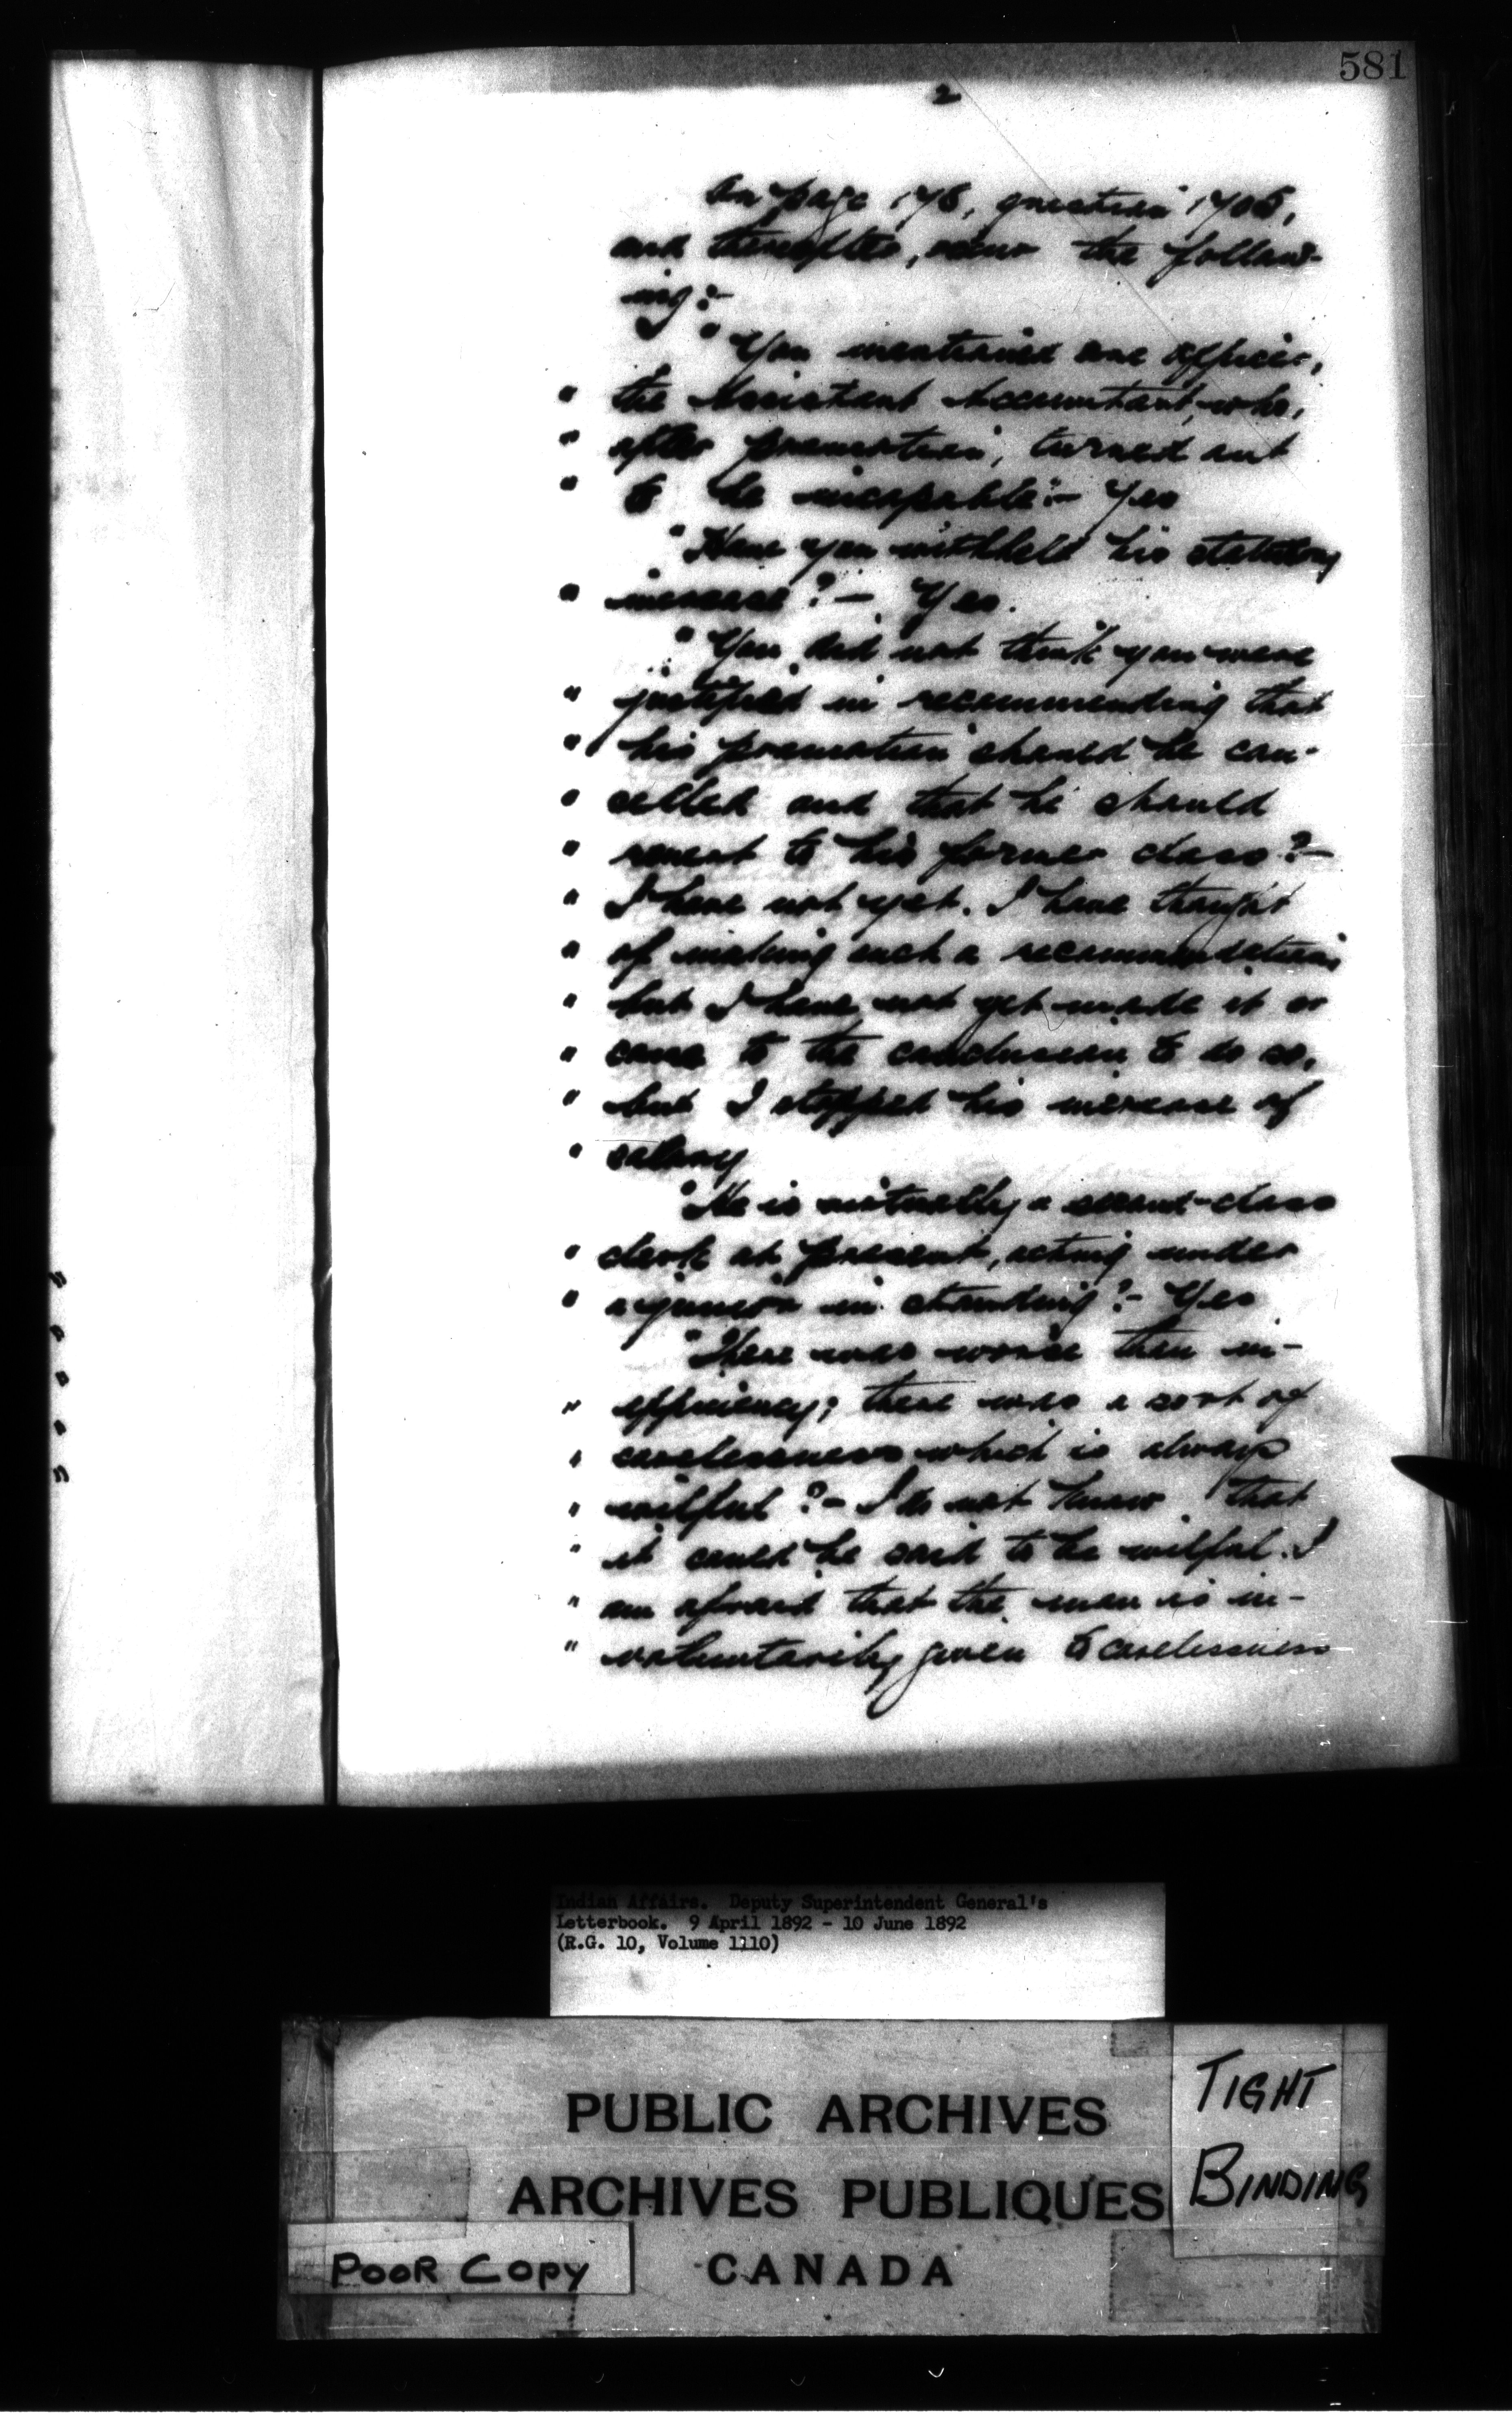 581
2
On page 178, question 1706,
and thereafter, occur the follow-
ing:-
"You mentioned one officer,
" the Assistant Accountant, who,
" after promotion, turned out
" to be incapable:- Yes
"Have you withheld his statutory
" increase?- Yes.
"You did not think you were
" justified in recommending that
" his promotion should be can-
" celled and that he should
" revert to his former class?-
" I have not yet. I have thought
" of making such a recommendation
" but I have not yet made it or
" come to the conclusion to do so,
" but I stopped his increase of
" salary
"He is virtually a second-class
" clerk at present, acting under
" a junior in standing?- Yes
"There was worse than in-
" efficiency; there was a sort of
" carelessness which is always
" wilful?- I do not know that
" it could be said to be wilful. I
" am afraid that the man is in-
" voluntarily given to carelessness
Indian Affairs. Deputy Superintendent General's
Letterbook. 9 April 1892 - 10 June 1892
(R.G. 10, Volume 1110)
PUBLIC ARCHIVES
ARCHIVES PUBLIQUES
CANADA
TIGHT
BINDING
POOR COPY